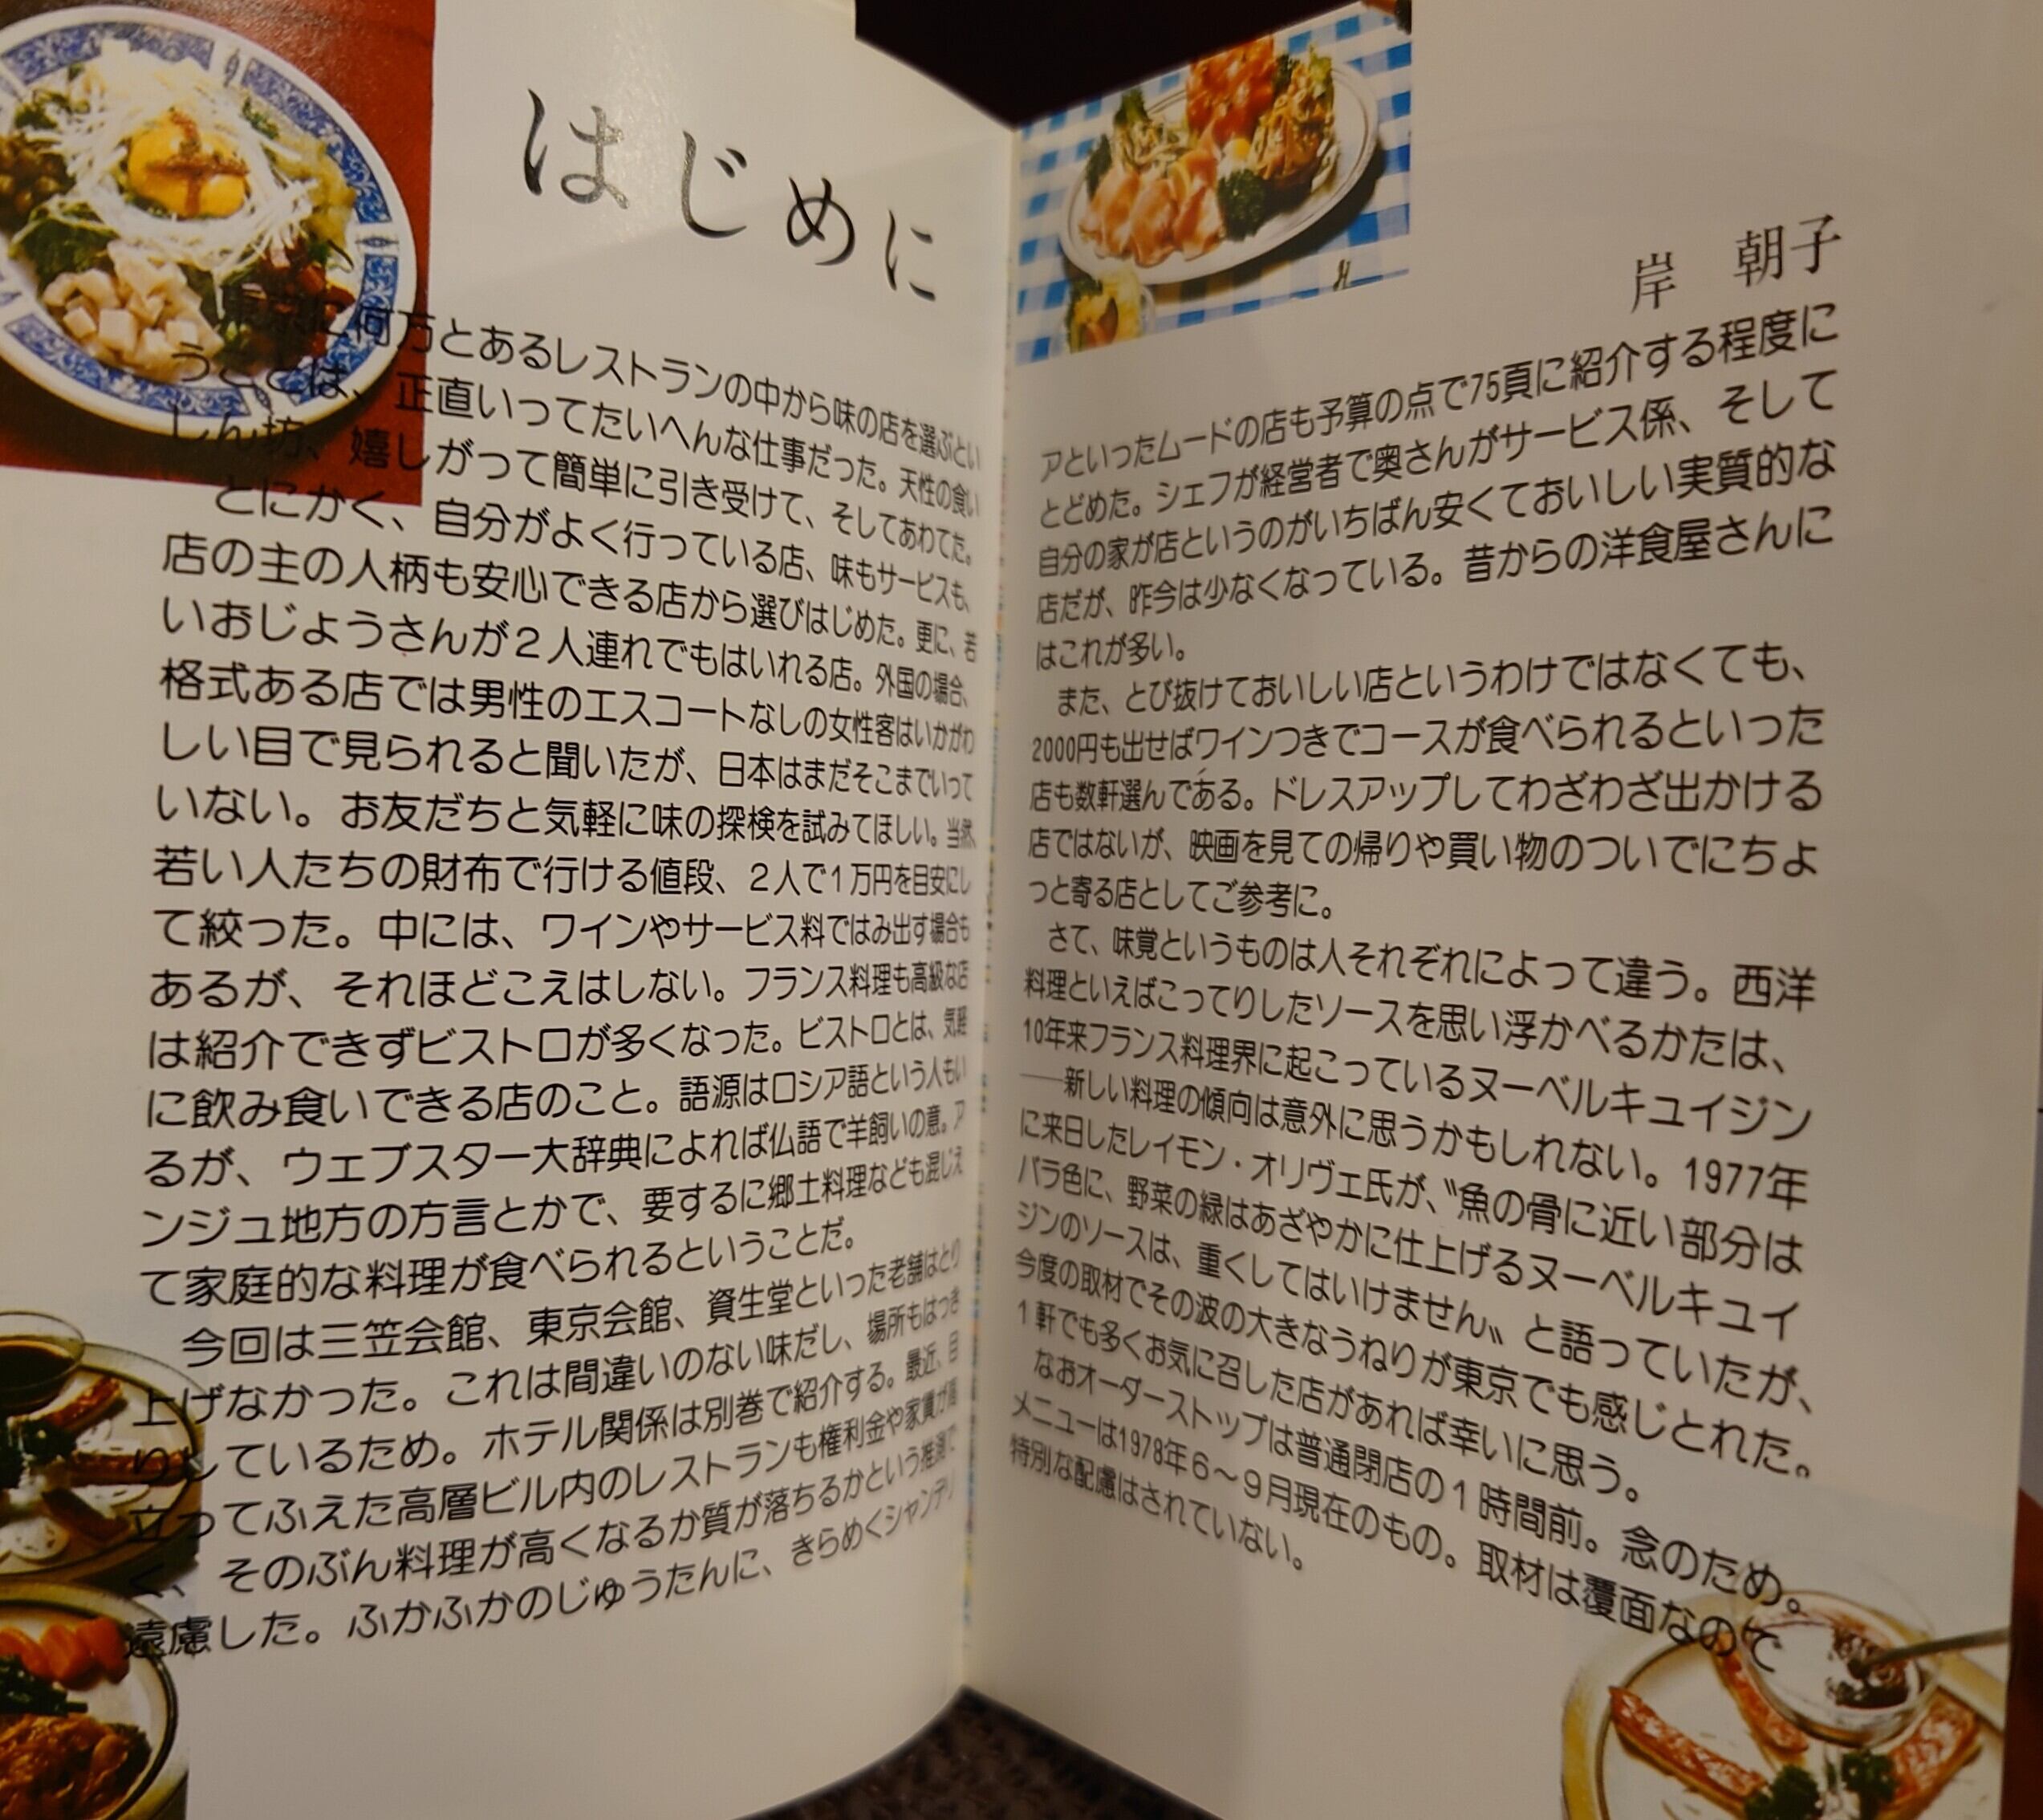 はじめに
東京に何万とあるレストランの中から味の店を選ぶとい
うことは、正直いってたいへんな仕事だった。天性の食い
しん坊、嬉しがって簡単に引き受けて、そしてあわてた。
とにかく、自分がよく行っている店、味もサービスも、
店の主の人柄も安心できる店から選びはじめた。更に、若
いおじょうさんが2人連れでもはいれる店。外国の場合、
格式ある店では男性のエスコートなしの女性客はいかがわ
しい目で見られると聞いたが、日本はまだそこまでいって
いない。お友だちと気軽に味の探検を試みてほしい。当然
若い人たちの財布で行ける値段、2人で1万円を目安にし
て絞った。中には、ワインやサービス料ではみ出す場合も
あるが、それほどこえはしない。フランス料理も高級な店
は紹介できずビストロが多くなった。ビストロとは、気軽
に飲み食いできる店のこと。語源はロシア語という人もい
るが、ウェブスター大辞典によれば仏語で羊飼いの意。ア
ンジュ地方の方言とかで、要するに郷土料理なども混じえ
て家庭的な料理が食べられるということだ。
今回は三笠会館、東京会館、資生堂といった老舗はとり
上げなかった。これは間違いのない味だし、場所もはっき
りしているため。ホテル関係は別巻で紹介する。最近、目
立ってふえた高層ビル内のレストランも権利金や家賃が高
く、そのぶん料理が高くなるか質が落ちるかという推測で
遠慮した。ふかふかのじゅうたんに、きらめくシャンデリ
岸 朝子
アといったムードの店も予算の点で75頁に紹介する程度に
とどめた。シェフが経営者で奥さんがサービス係、そして
自分の家が店というのがいちばん安くておいしい実質的な
店だが、昨今は少なくなっている。昔からの洋食屋さんに
はこれが多い。
また、とび抜けておいしい店というわけではなくても、
2000円も出せばワインつきでコースが食べられるといった
店も数軒選んである。ドレスアップしてわざわざ出かける
店ではないが、映画を見ての帰りや買い物のついでにちょ
っと寄る店としてご参考に。
さて、味覚というものは人それぞれによって違う。西洋
料理といえばこってりしたソースを思い浮かべるかたは、
10年来フランス料理界に起こっているヌーベルキュイジン
──新しい料理の傾向は意外に思うかもしれない。1977年
に来日したレイモン・オリヴェ氏が、〝魚の骨に近い部分は
バラ色に、野菜の緑はあざやかに仕上げるヌーベルキュイ
ジンのソースは、重くしてはいけません〟と語っていたが、
今度の取材でその波の大きなうねりが東京でも感じとれた。
1軒でも多くお気に召した店があれば幸いに思う。
なおオーダーストップは普通閉店の1時間前。念のため。
メニューは1978年6〜9月現在のもの。取材は覆面なので
特別な配慮はされていない。